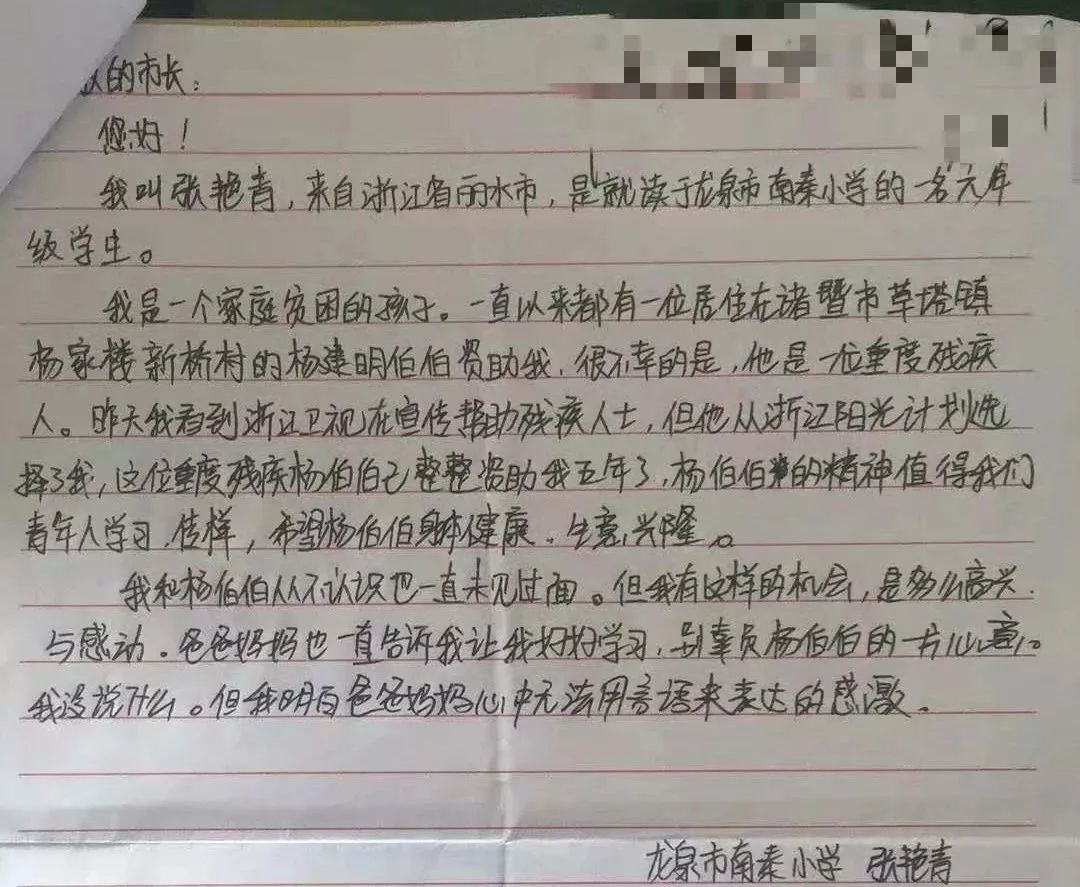 的市长：
您好！
我叫张艳青，来自浙江省丽水市，是就读于龙泉市南秦小学的一名六年
级学生。
我是一个家庭贫困的孩子。一直以来都有一位居住在诸暨市草塔镇
杨家楼新桥村的杨建明伯伯资助我，很不幸的是，他是一位重度残疾
人。昨天我看到浙江卫视在宣传帮助残疾人士，但他从浙江阳光计划选
择了我，这位重度残疾杨伯伯已整整资助我五年了，杨伯伯的精神值得我们
青年人学习，传样，希望杨伯伯身体健康、生意兴隆。
我和杨伯伯从不认识也一直未见过面。但我有这样的机会，是多么高兴
与感动。爸爸妈妈也一直告诉我让我好好学习，别辜负杨伯伯的一片心意。
我没说什么。但我明白爸爸妈妈心中无法用言语来表达的感激。
龙泉市南秦小学 张艳青